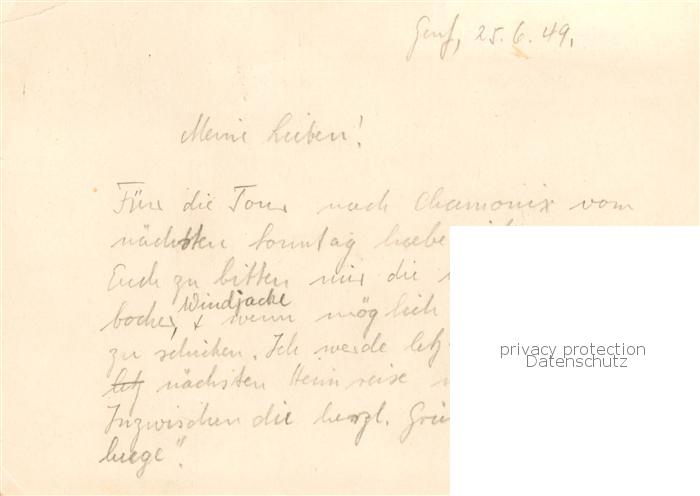 Genf, 25.6.49.
Meine Lieben!
Für die Tour nach Chamonix vom
nächsten Sonntag habe
Euch zu bitten mir die
Windjacke
wenn möglich
zu schicken. Ich werde
nächsten Heimreise
Inzwischen die herzl.
privacy protection
Datenschutz